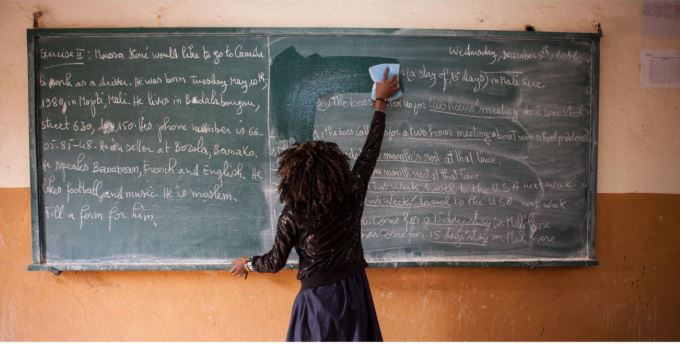 Exercise II : Moussa Koné would like to go to Canada
to work as a driver. He was born Tuesday May 10th,
1989 in Mopti, Mali. He lives in Badalabougou,
street 630, 150. His phone number is 66-
05-85-48. He is a seller at Bozola, Bamako.
He speaks Bamanan, French and English. He
likes football and music. He is moslem.
Fill a form for him.
Wednesday, December 5th
(a stay of 15 days) in Mali here.
The boss up for two hours' meeting about some school
The boss calls for a two hours meeting about some school problems
month's rest at that time.
month rest at that time.
two week travel to the USA next week
weeks' travel to the USA next week
come for a 15 days stay in Mali here
come for 15 days' stay in Mali here